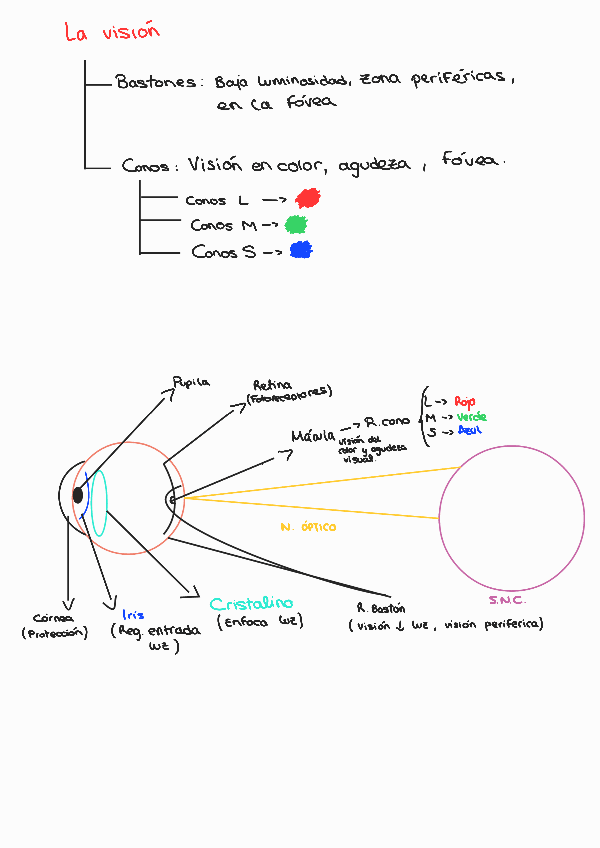 La visión
Bastones: Baja luminosidad, zona periféricas,
en la fóvea
Conos: Visión en color, agudeza, fóvea.
Conos L ->
Conos M ->
Conos S ->
Pupila
Retina
(Fotoreceptores)
Mácula -> R. cono
visión del
color y agudeza
visual.
L -> Rojo
M -> Verde
S -> Azul
N. óptico
S.N.C.
Córnea
(Protección)
Iris
(Reg. entrada
luz)
Cristalino
(Enfoca luz)
R. Bastón
(visión ↓ luz, visión periferica)